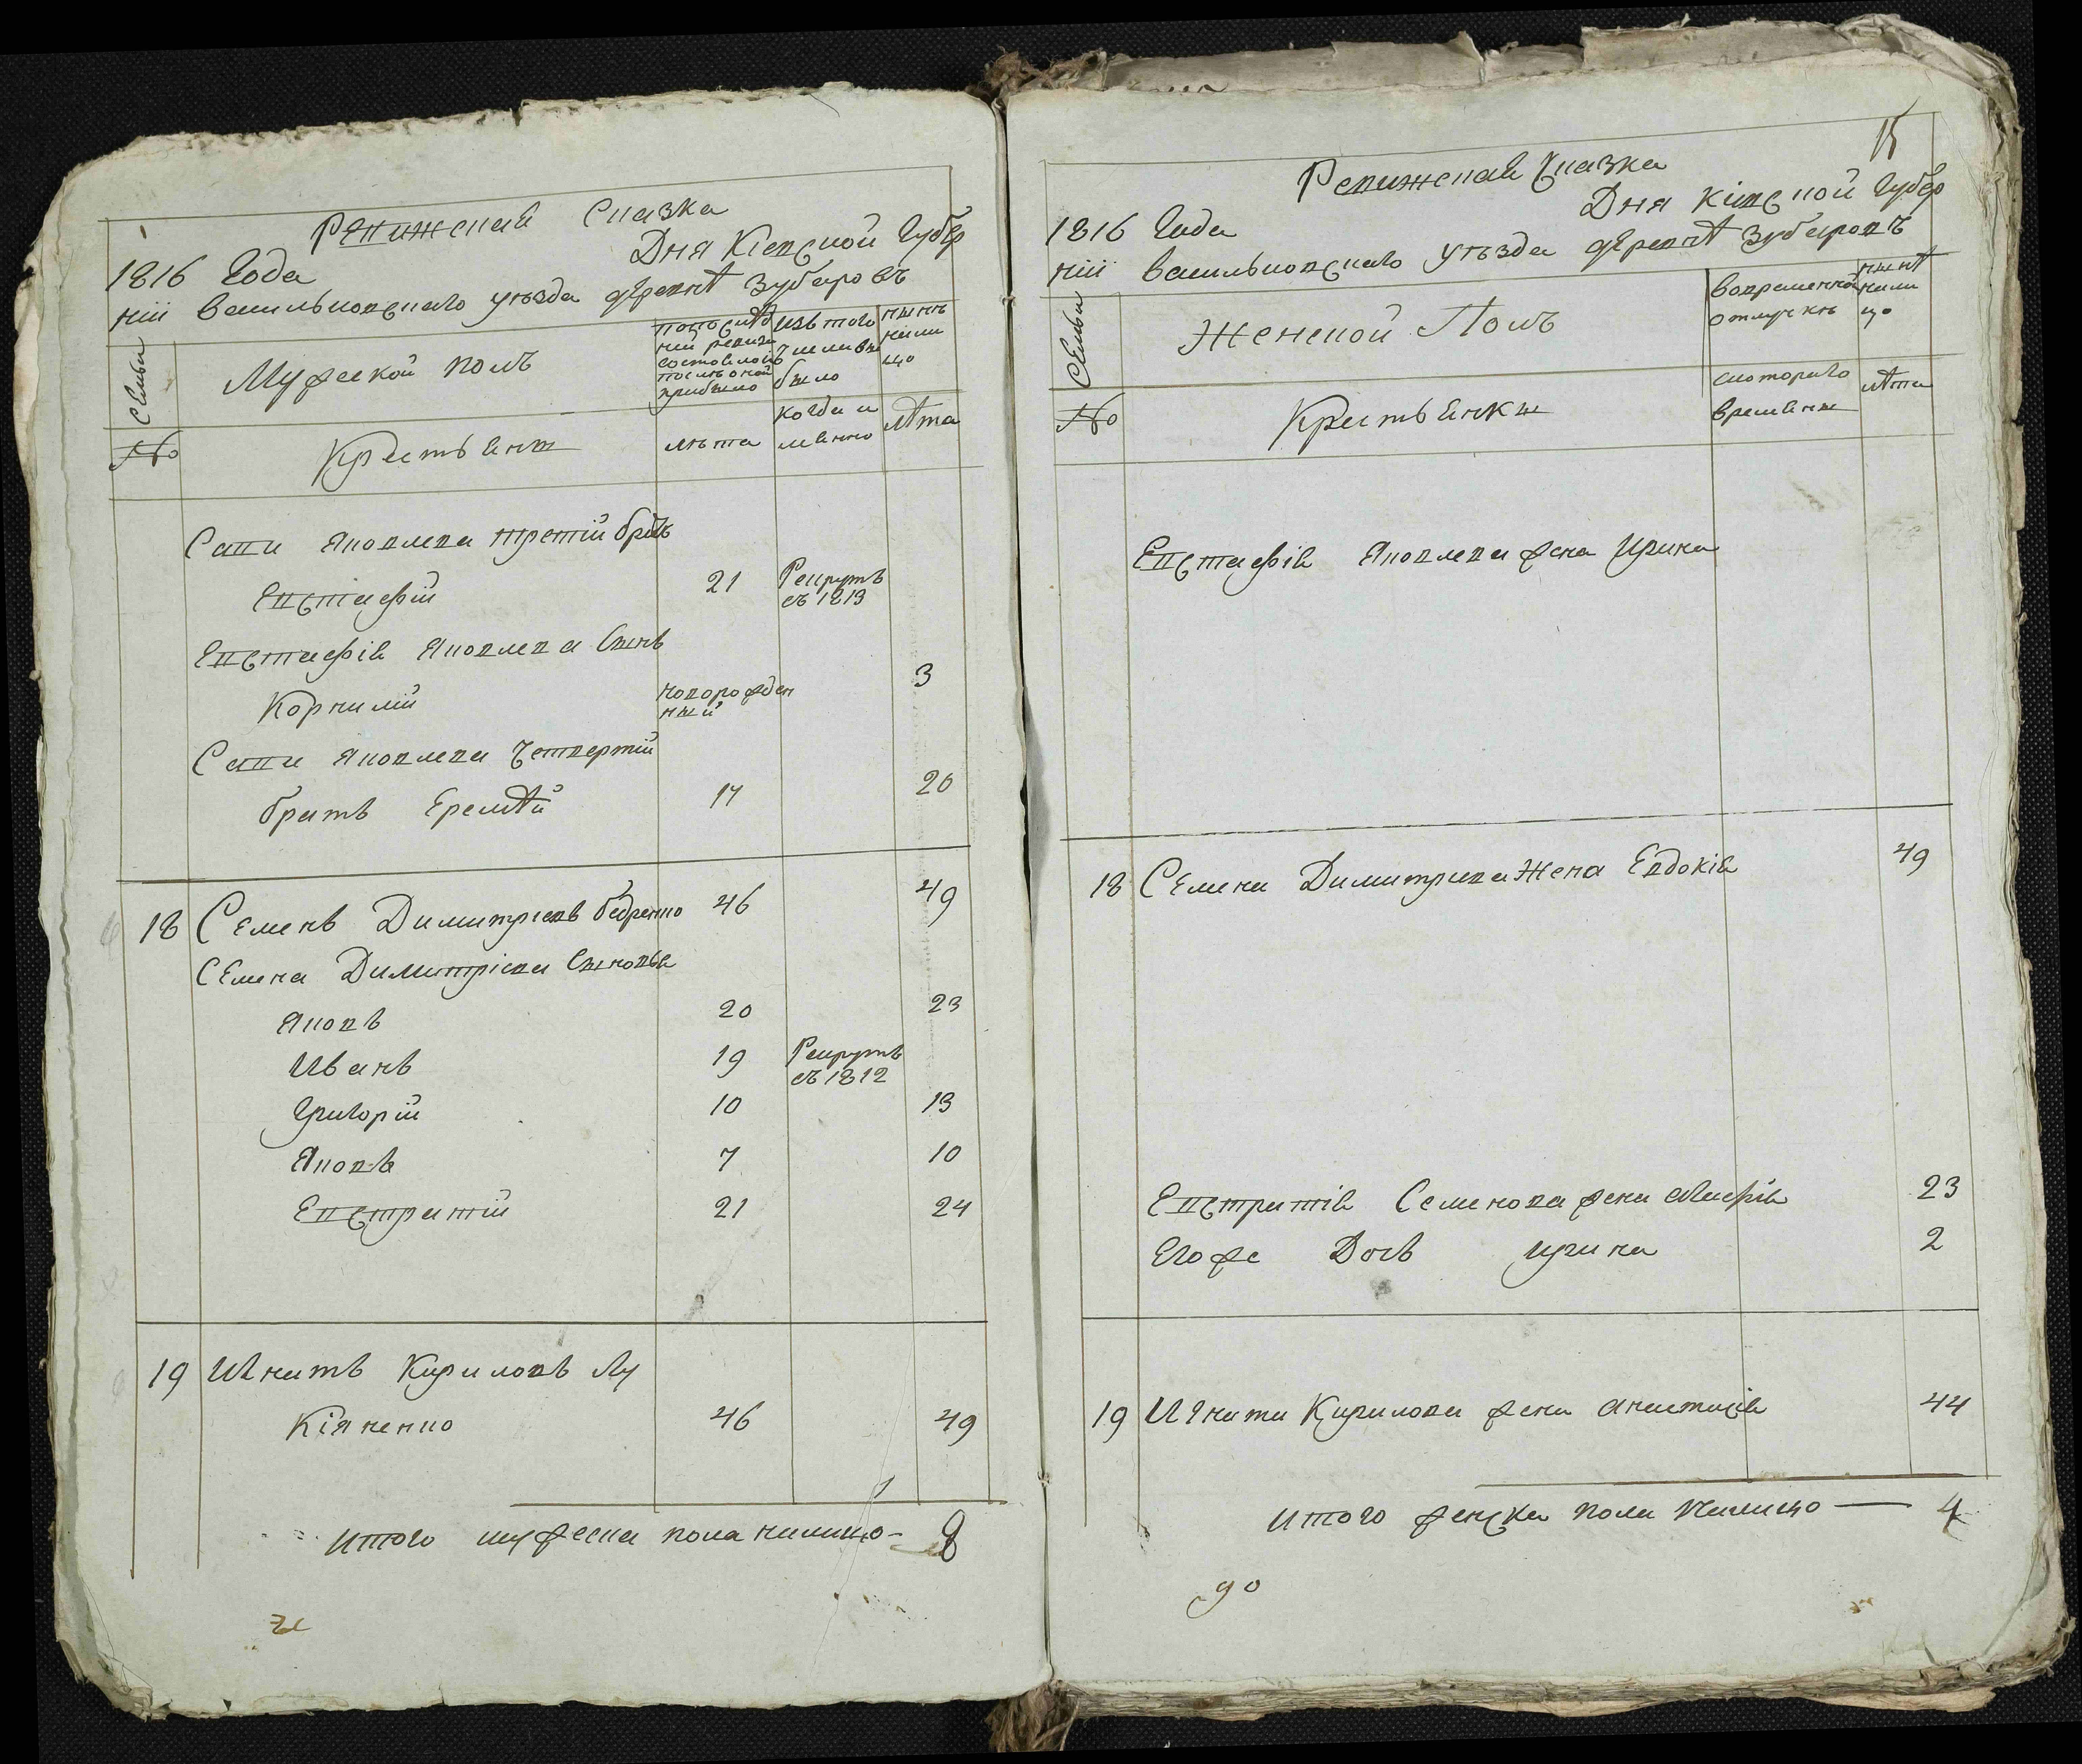 Ревижская Сказка
1816 Года Дня Кіевской Губер
нiи васильковскаго уѣзда деревнѣ Зубаровъ
Семьи
Мужской полъ
попослѣд
ней ревизи
состояло и
послѣ оной
прибыло
изъ того
числа вы
было
нынѣ
нали
цо
№
Крестьяне
лѣта
когда и
менно
лѣта
Савы Яковлева третій братъ
Евстафій 21 Рекрутъ
въ 1813
Евстафія Яковлева Сынъ
Корнилій новорожден
ный 3
Савы Яковлева Четвертій
братъ Еремѣй 17 20
18 Семенъ Димитріевъ бедренко 46 49
Семена Димитріева Сыновья
Яковъ 20 23
Иванъ 19 Рекрутъ
въ 1812
Григорій 10 13
Яковъ 7 10
Евстратій 21 24
19 Игнатъ Кириловъ Лу
Кіяненко 46 49
итого мужеска пола налицо - 8
15
Ревижская Сказка
1816 Года Дня Кіевской Губер
нiи васильковскаго уѣзда деревнѣ Зубаровъ
Семьи
Женской Полъ
вовременной
отлучкѣ
нынѣ
нали
цо
№
Крестьянки
скоторого
времены
лѣта
Евстафія Яковлева жена Ирина
18 Семена Димитрива Жена Евдокія 49
Евстратія Семенова жена 23
Егоже Дочь ирина 2
19 Игната Кирилова жена анастасія 44
итого женска пола налицо — 4
до